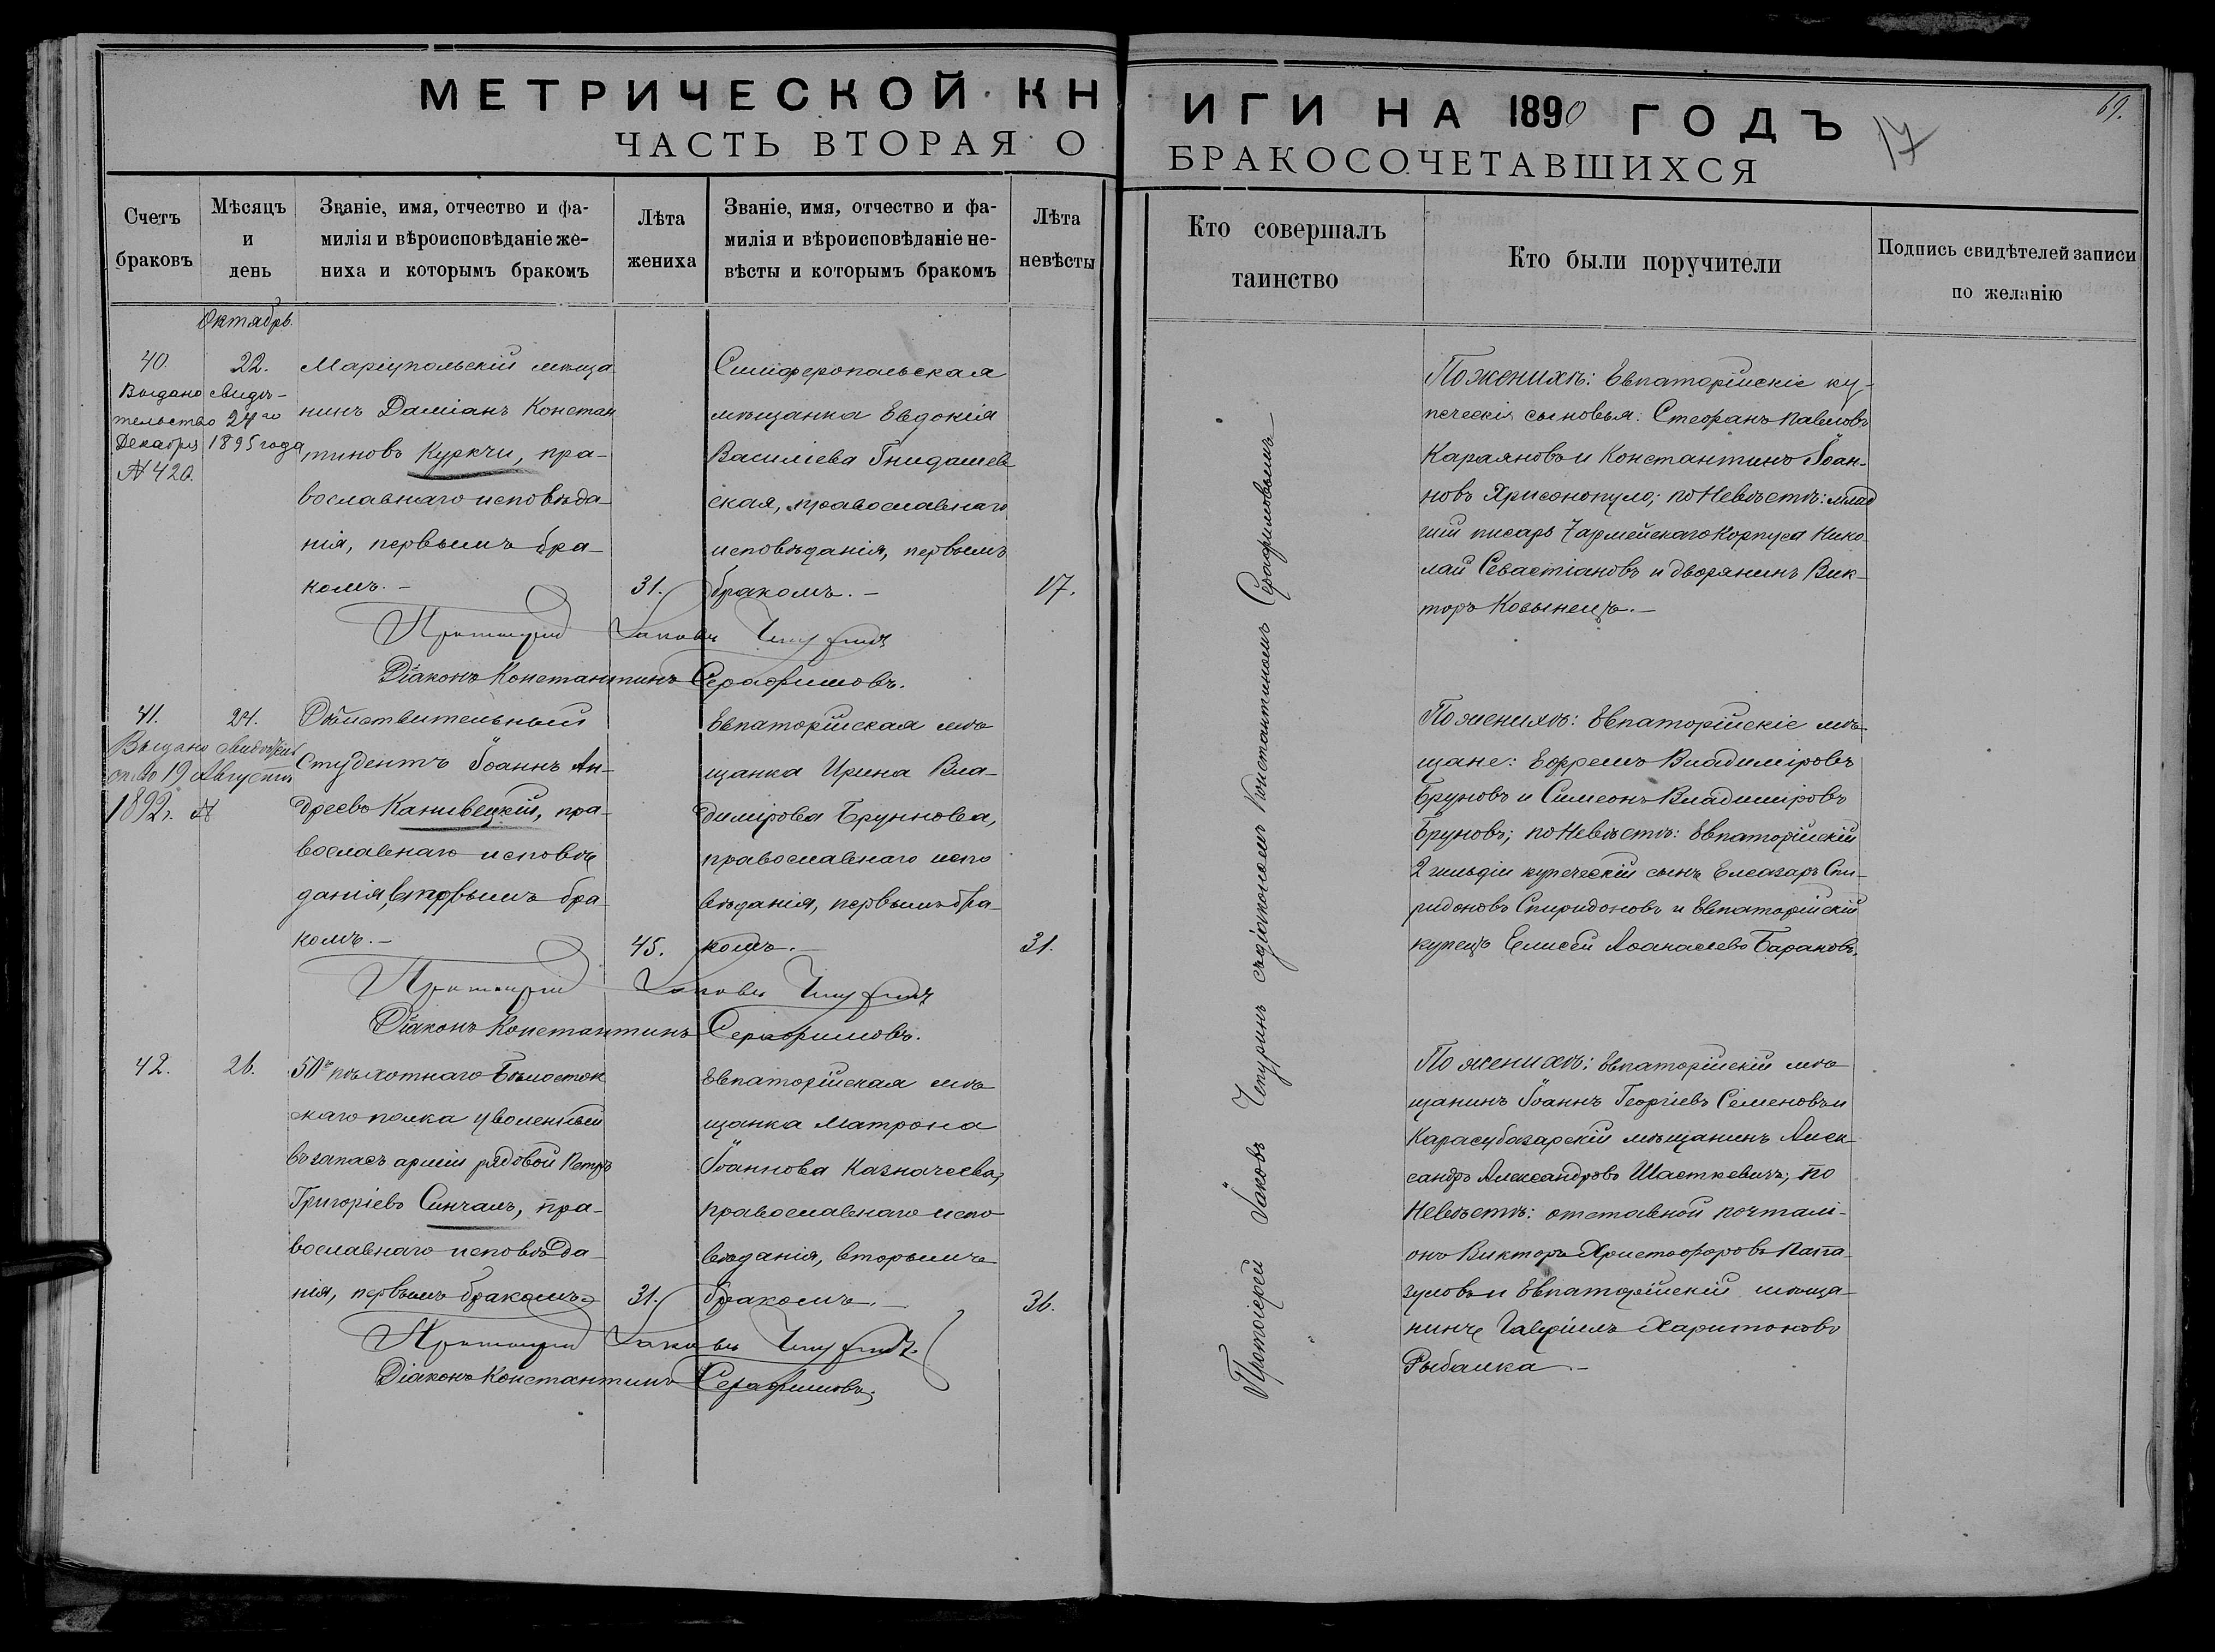 МЕТРИЧЕСКОЙ КНИГИ НА 1890 ГОДЪ
69.
17
ЧАСТЬ ВТОРАЯ О БРАКОСОЧЕТАВШИХСЯ
Счетъ
браковъ
Мѣсяцъ
и
день
Званіе, имя, отчество и фа-
милія и вѣроисповѣданіе же-
ниха и которымъ бракомъ
Лѣта
жениха
Званіе, имя, отчество и фа-
милія и вѣроисповѣданіе не-
вѣсты и которымъ бракомъ
Лѣта
невѣсты
Кто совершалъ
таинство
Кто были поручители
Подпись свидѣтелей записи
по желанію
Октябрь.
40.
22.
Выдано свидѣ-
тельство 24го
Декабря 1895 года
№ 420.
Маріупольскій мѣща
нинъ Даміанъ Констан
тиновъ Куркчи, пра-
вославнаго исповѣда-
нія, первымъ бра-
комъ.-
31.
Симферопольская
мѣщанка Евдокія
Василіева Гнидашев
ская, православнаго
исповѣданія, первымъ
бракомъ.-
17.
Протоіерей Іаковъ Чепуринъ
Діаконъ Константинъ Серафимовъ.
По женихѣ: Евпаторійскіе ку-
печескія сыновья: Стефанъ Павловъ
Караяновъ и Константинъ Іоан-
новъ Хрисонопуло; по Невѣстѣ: млад
шій писарь 7 армейскаго Корпуса Нико-
лай Севастіановъ и дворянинъ Вик-
торъ Ковынецъ.-
41.
24.
Выдано
19 Августа
1892 г. №
Дѣйствительный
Студентъ Іоаннъ Ан-
дреевъ Канивецкій, пра-
вославнаго исповѣ
данія, вторымъ бра-
комъ.-
45.
Евпаторійская мѣ-
щанка Ирина Вла-
димірова Бруннова,
православнаго испо
вѣданія, первымъ бра-
комъ.-
31.
Протоіерей Іаковъ Чепуринъ
Діаконъ Константинъ Серафимовъ.
По женихѣ: Евпаторійскіе мѣ-
щане: Ефремъ Владиміровъ
Бруновъ и Симеонъ Владиміровъ
Бруновъ; по Невѣстѣ: Евпаторійскій
2 гильдіи купеческій сынъ Елеазаръ Спи-
ридоновъ Спиридоновъ и Евпаторійскій
купецъ Елисей Аѳанасіевъ Барановъ.
42.
26.
50го пѣхотнаго Бѣлосток
скаго полка уволенный
въ запасъ арміи рядовой Петръ
Григоріевъ Синчалъ, пра-
вославнаго исповѣда-
нія, первымъ бракомъ.-
31.
Евпаторійская мѣ-
щанка Матрона
Іоаннова Казначеева,
православнаго испо
вѣданія, вторымъ
бракомъ.-
36.
Протоіерей Іаковъ Чепуринъ.
Діаконъ Константинъ Серафимовъ.
По женихѣ: Евпаторійскій мѣ-
щанинъ Іоаннъ Георгіевъ Семеновъ и
Карасубазарскій мѣщанинъ Алек-
сандръ Александровъ Шасткевичъ; по
Невѣстѣ: отставной почталі-
онъ Викторъ Христофоровъ Папа-
зуловъ и Евпаторійскій мѣща-
нинъ Гавріилъ Харитоновъ
Рыбалка.-
Протоіерей Іаковъ Чепуринъ съ діакономъ Константиномъ Серафимовымъ